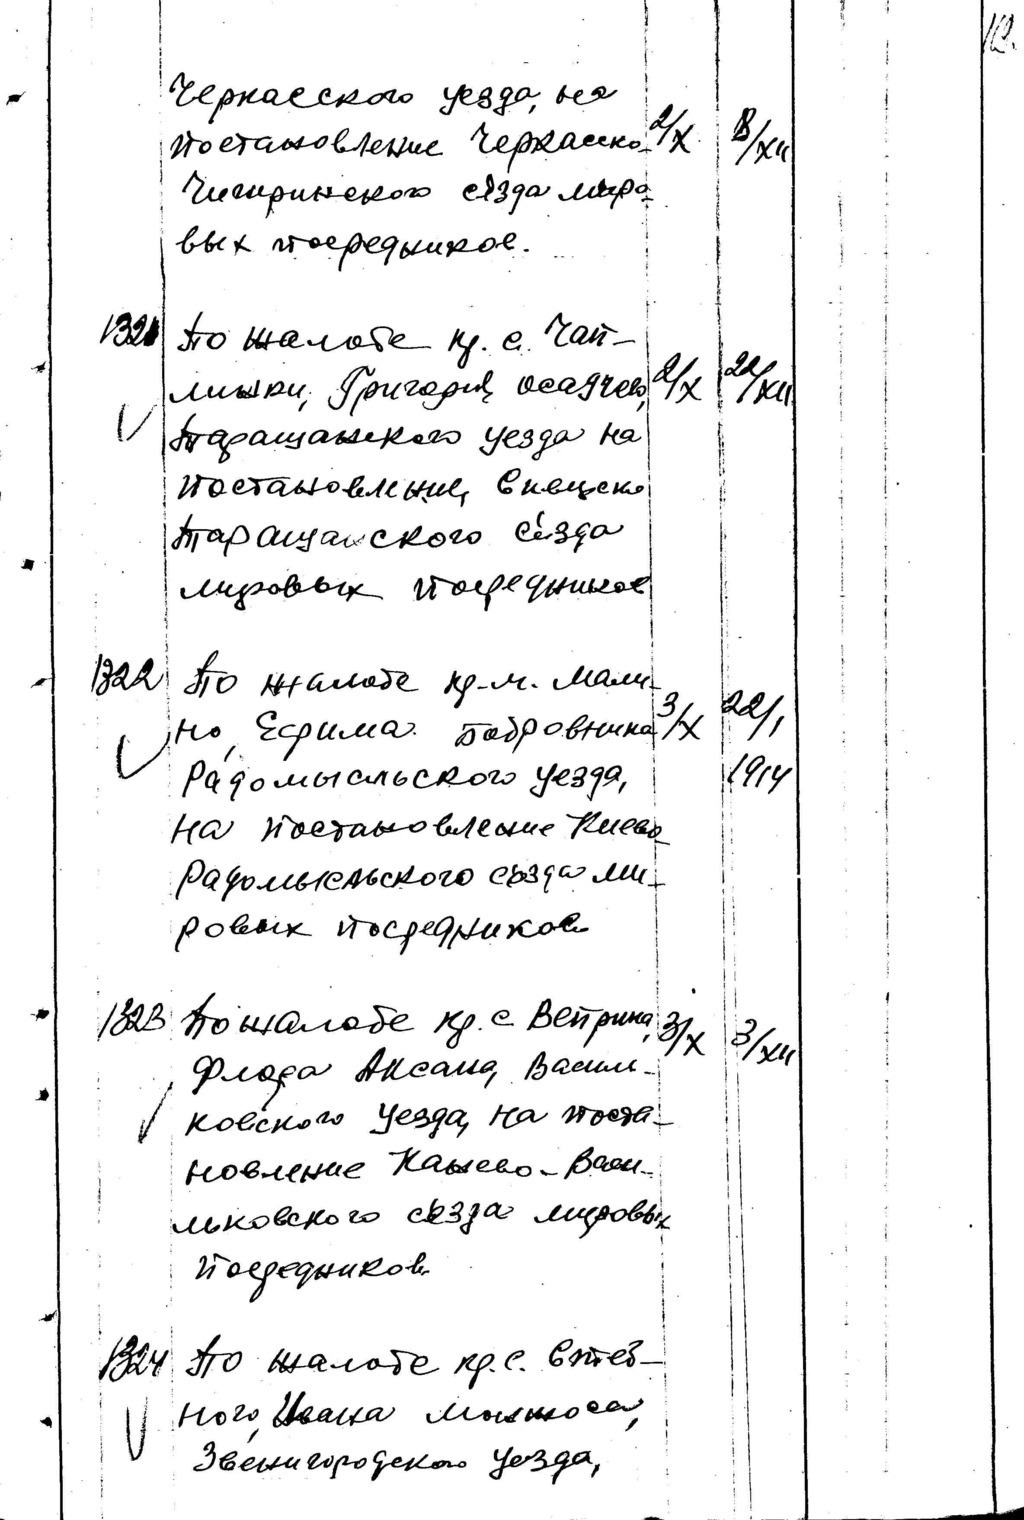 Черкасского уезда, на
постановление Черкасско- 2/X 8/XII
Чигиринского с'езда миро-
вых посредников.
1321 По жалобе кр. с. Чап-
линки, Григория Осадчего, 2/X 22/XII
Таращанского уезда на
постановление, Сквирско
Таращанского с'езда
мировых посредников
1322 По жалобе кр-м. Мали-
но, Ефима Бобровника 3/X 22/I
Радомысльского уезда, 1914
на постановление Киево-
Радомысльского съезда ми-
ровых посредников
1323 По жалобе кр. с. Веприка, 3/X 3/XII
Флора Аксана, Василь-
ковского уезда, на поста-
новление Канево-Васи-
льковского съезда мировых
посредников
1324 По жалобе кр. с.
Ивана
Звенигородского уезда,